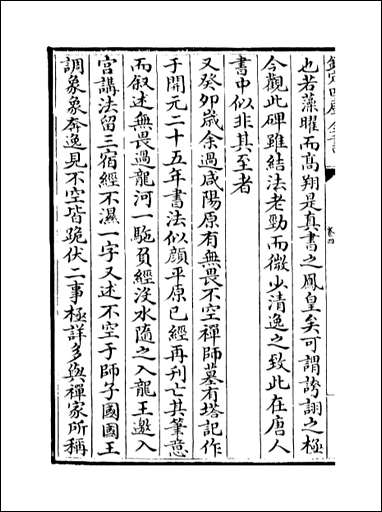 也若藻曜而高翔是真書之鳳皇矣可謂誇詡之極
今觀此碑雖結法老勁而微少清逸之致此在唐人
書中似非其至者
又癸卯歲余過咸陽原有無畏不空禪師墓有塔記作
于開元二十五年書法似顔平原已經再刊亡其筆意
而叙述無畏過龍河一駞負經沒水隨之入龍王邀入
宮講法留三宿經不濕一字又述不空于師子國國王
調象象奔逸見不空皆跪伏二事極詳多與禪家所稱